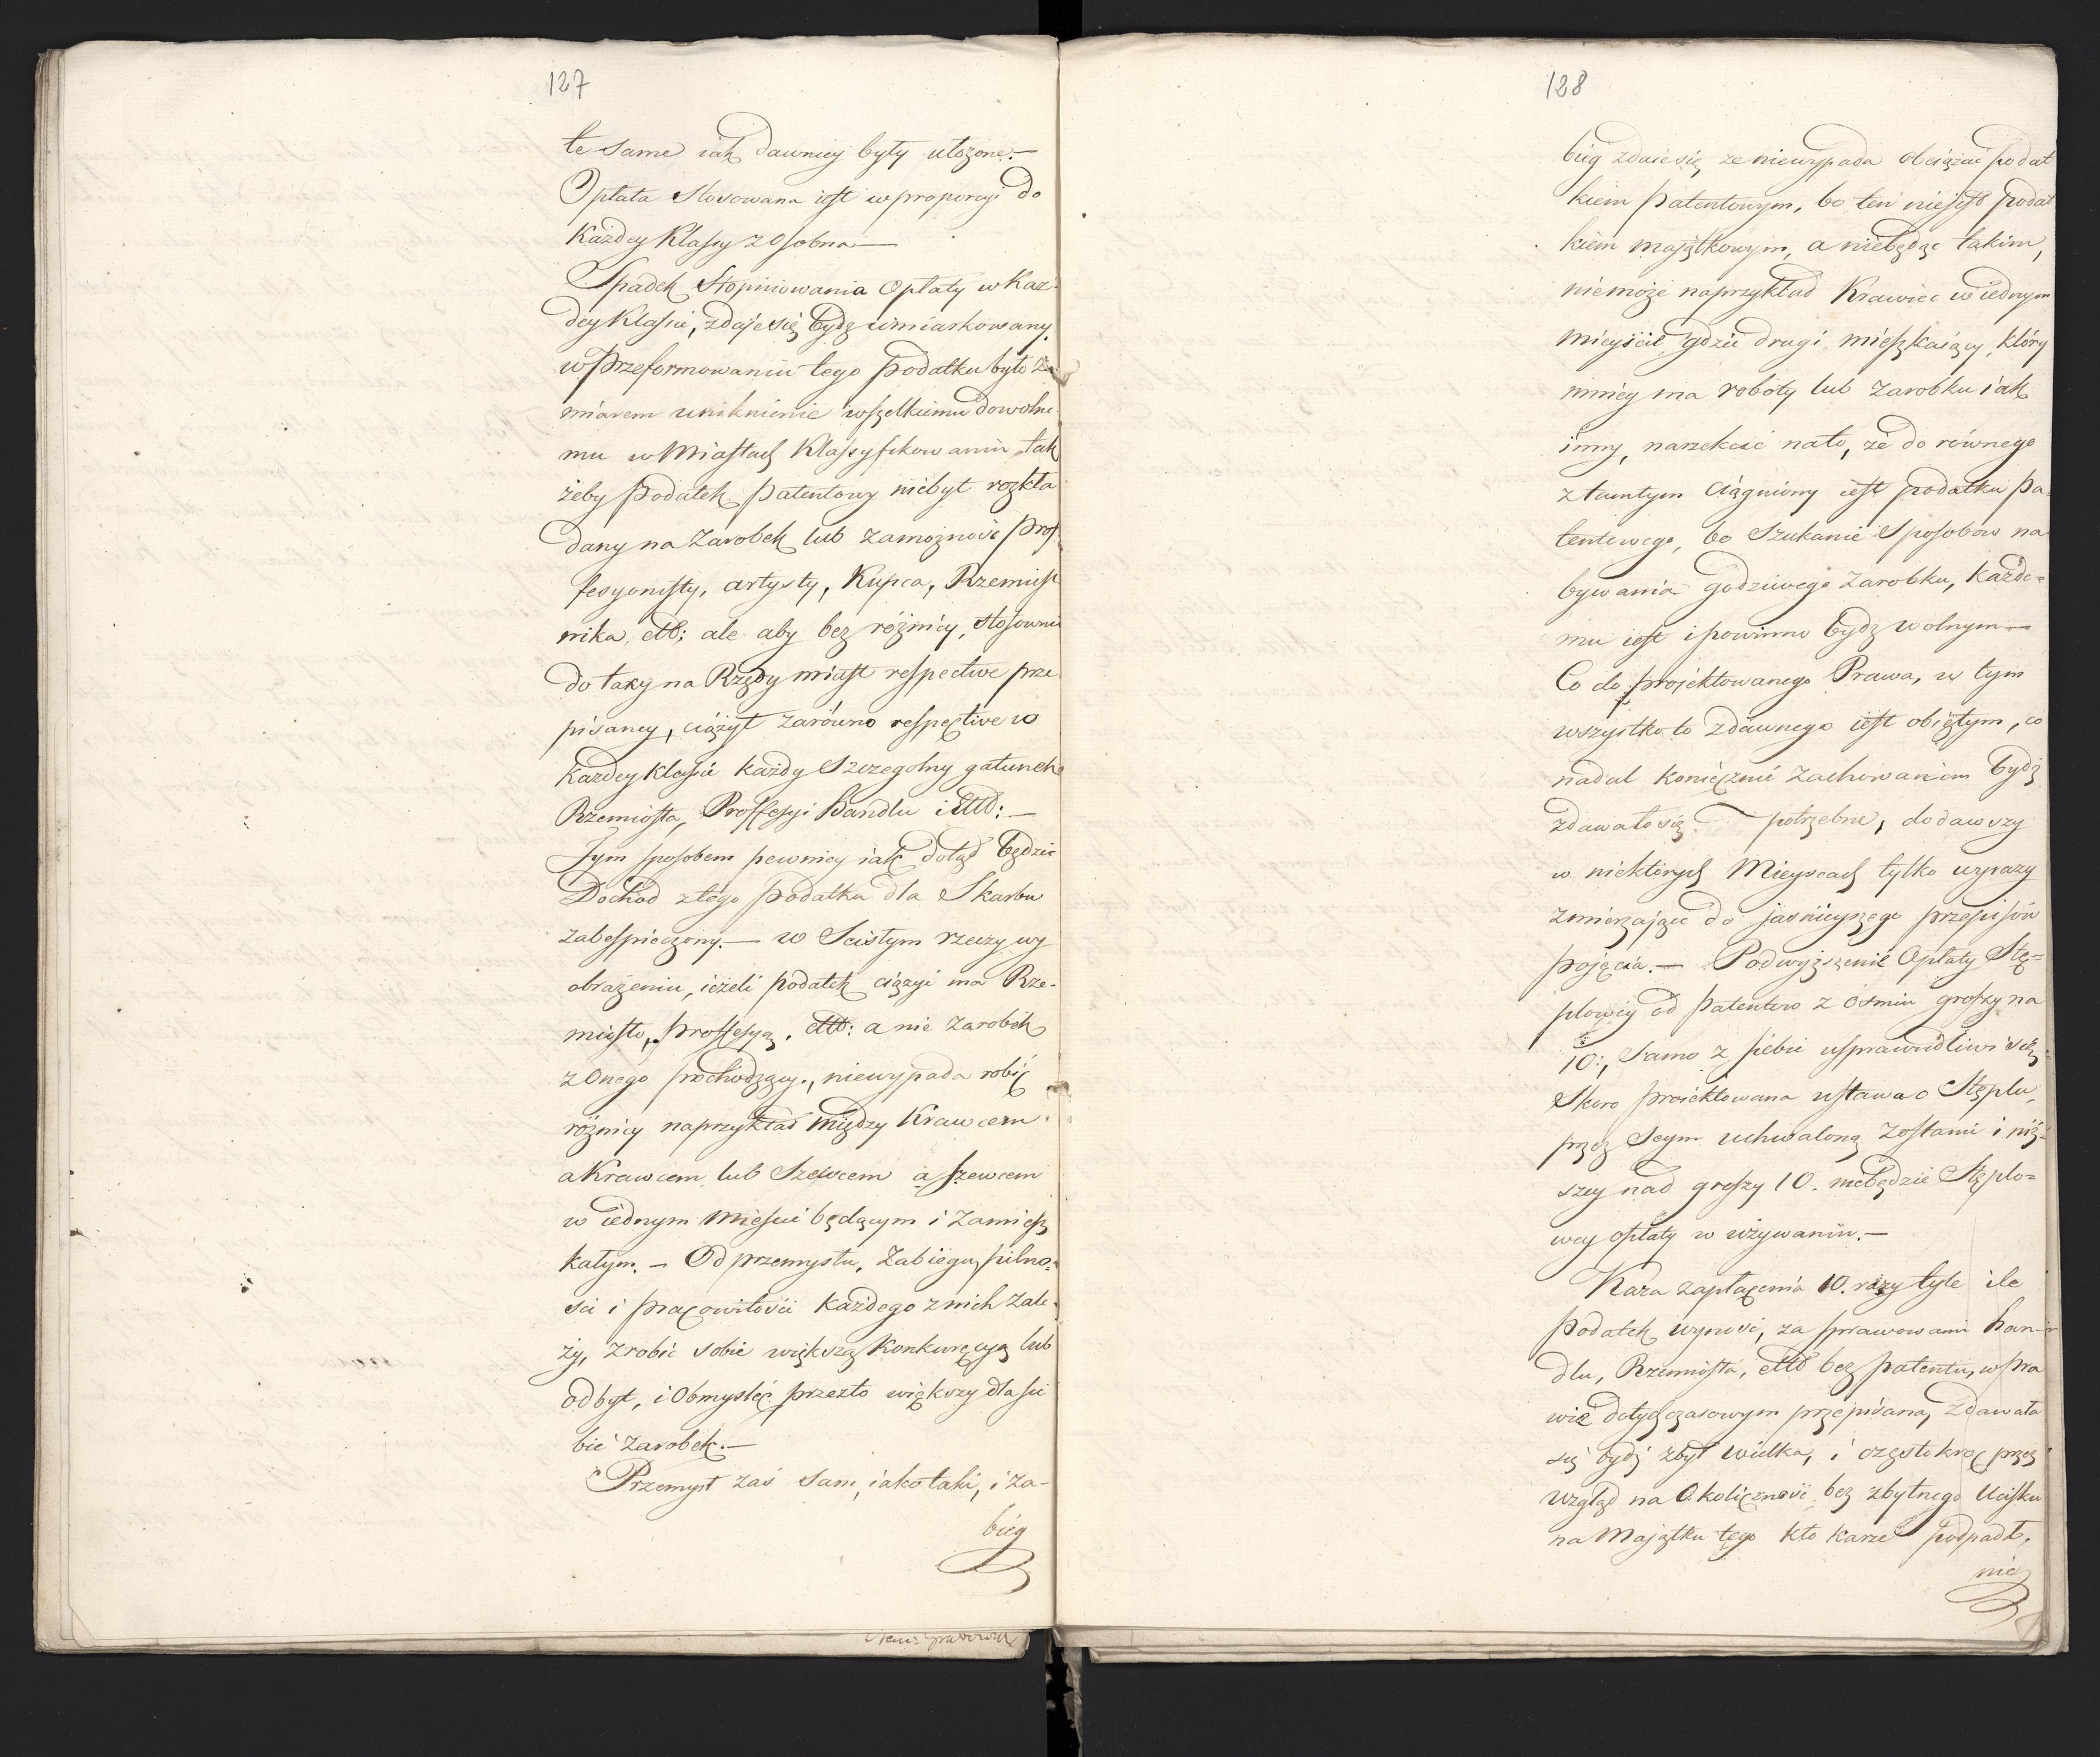 127
te same iak dawniey były ułożone.—
Opłata stosowana iest w proporcyi do
każdey Klassy z osobna—
Spadek stopniowania Opłaty w każ-
dey Klassie, zdaje się bydz umiarkowany.
w Przeformowaniu tego podatku było za
miarem uniknienie wszelkiemu dowolne
mu w Miastach Klassyfikowaniu, tak
żeby podatek patentowy niebył rozkła
dany na Zarobek lub zamożność prof
fesyonisty, artysty, Kupca, Rzemieśl
nika, ettc: ale aby bez różnicy, stosownie
do taxy na Rzędy miast respective prze
pisaney, ciążył zarówno respective w
każdey klassie każdy szczegolny gatunek
Rzemiosła, Proffesyi Handlu i ettc:—
Tym sposobem pewniey iak dotąd będzie
Dochod z tego podatku dla Skarbu
zabespieczony.— w Scisłym rzeczy wy
obrażeniu, ieżeli podatek ciąży na Rze-
miosło, proffesyą, ettc: a nie zarobek
z Onego pochodzący, niewypada robić
różnicy naprzykład między Krawcem
a Krawcem, lub Szewcem a szewcem
w iednym Mieście będącym i zamiesz
kałym.— Od przemysłu, Zabiegu, pilno-
sci i pracowitości każdego z nich zale-
ży, zrobić sobie większą Konkurecyą lub
odbyt, i Obmysleć przezto większy dla sie
bie zarobek.—
Przemysł zaś sam, iako taki, i za-
bieg
128
bieg zdaie się że niewypada obciążać podat
kiem patentowym, bo ten niejest podat
kiem majątkowym, a niebędąc takim,
niemoże naprzykład Krawiec w iednym
mieyscie gdzie drugi mieszkaiący, który
mniey ma roboty lub zarobku iak
inny, narzekać nato, że do równego
z tamtym ciągniony iest podatku pa-
tentowego, bo Szukanie sposobow na
bywania godziwego zarobku, każde-
mu iest i powinno bydz wolnym—
Co do projektowanego Prawa, w tym
wszystko to z dawnego iest obiętym, co
nadal koniecznie zachowaniem bydź
zdawało się potrzebne, dodawszy
w niektórych Mieyscach tylko wyrazy
zmierzające do jaśnieyszego przepisów
pojęcia.— Podwyższenie Opłaty Stę-
plowey od patentow z ósmiu groszy na
10:, samo z siebie usprawiedliwi się,
Skoro proiektowana ustawa o Stęplu,
przez Seym uchwaloną zostanie i niż-
szey nad groszy 10. niebędzie Stęplo-
wey opłaty w używaniu.—
Kara zapłacenia 10. razy tyle ile
podatek wynosi, za sprawowanie han-
dlu, Rzemiosła, ettc bez patentu, w pra
wie dotychczasowym przepisana, zdawała
się bydź zbyt wielka, i częstokroć przez
wzgląd na Okoliczności bez zbytnego Ucisku
na Majątku tego kto karze podpadł,
nie